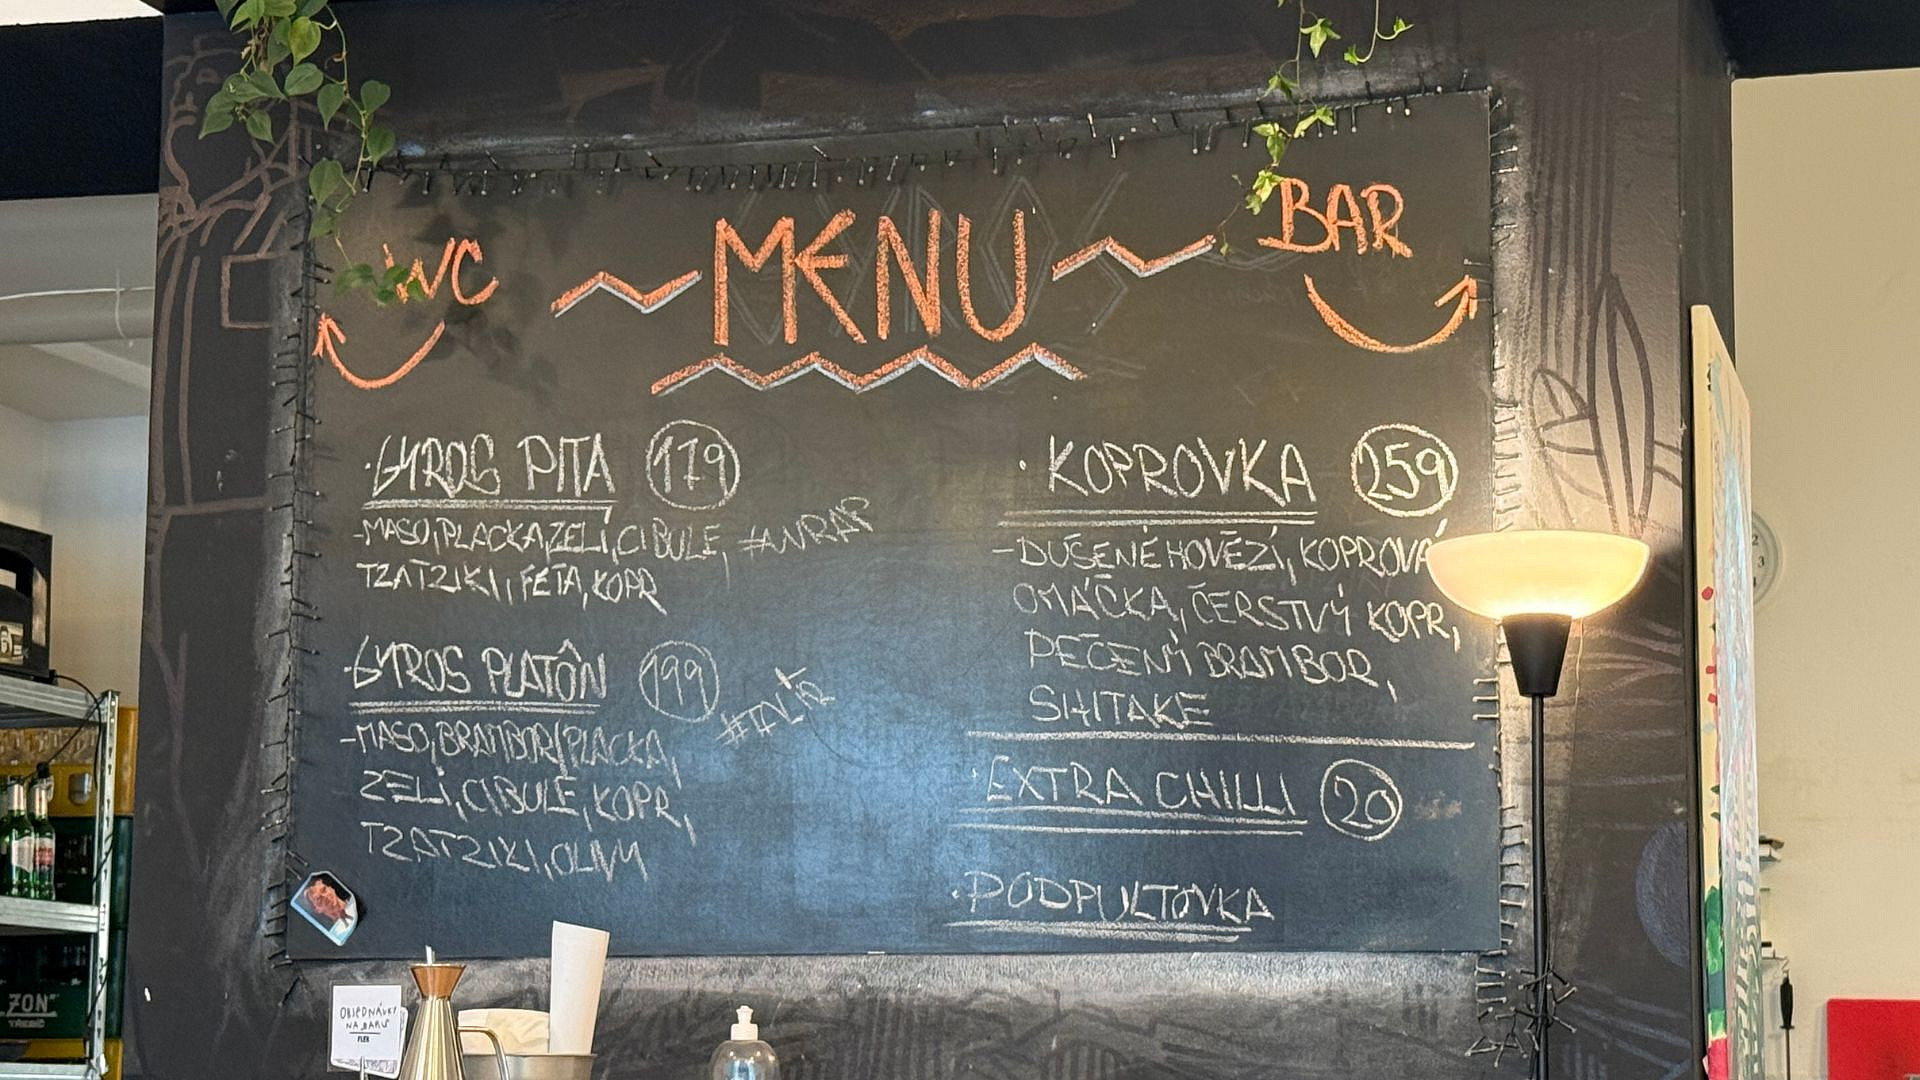 WC
MENU
BAR
·GYROS PITA 179
-MASO, PLACKA, ZELÍ, CIBULE, #WRAP
TZATZIKI, FETA, KOPR
·GYROS PLATÔN 199
-MASO, BRAMBOR/PLACKA, #TALÍŘ
ZELÍ, CIBULE, KOPR,
TZATZIKI, OLIVY
·KOPROVKA 259
-DUŠENÉ HOVĚZÍ, KOPROVÁ
OMÁČKA, ČERSTVÝ KOPR,
PEČENÝ BRAMBOR,
SHITAKE
·EXTRA CHILLI 20
·PODPULTOVKA
OBJEDNÁVKY
NA BARU
FLEK
ZON
TŘEBÍČ